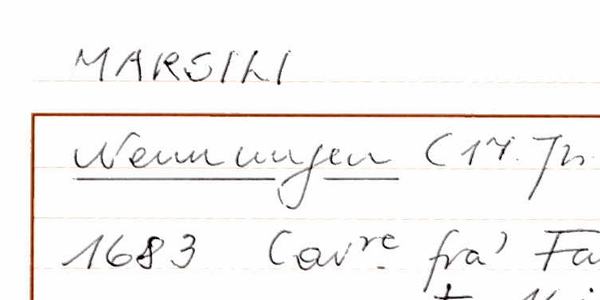 MARSILI
Nennungen (17. Jh.
1683 Cav^re fra' Fa